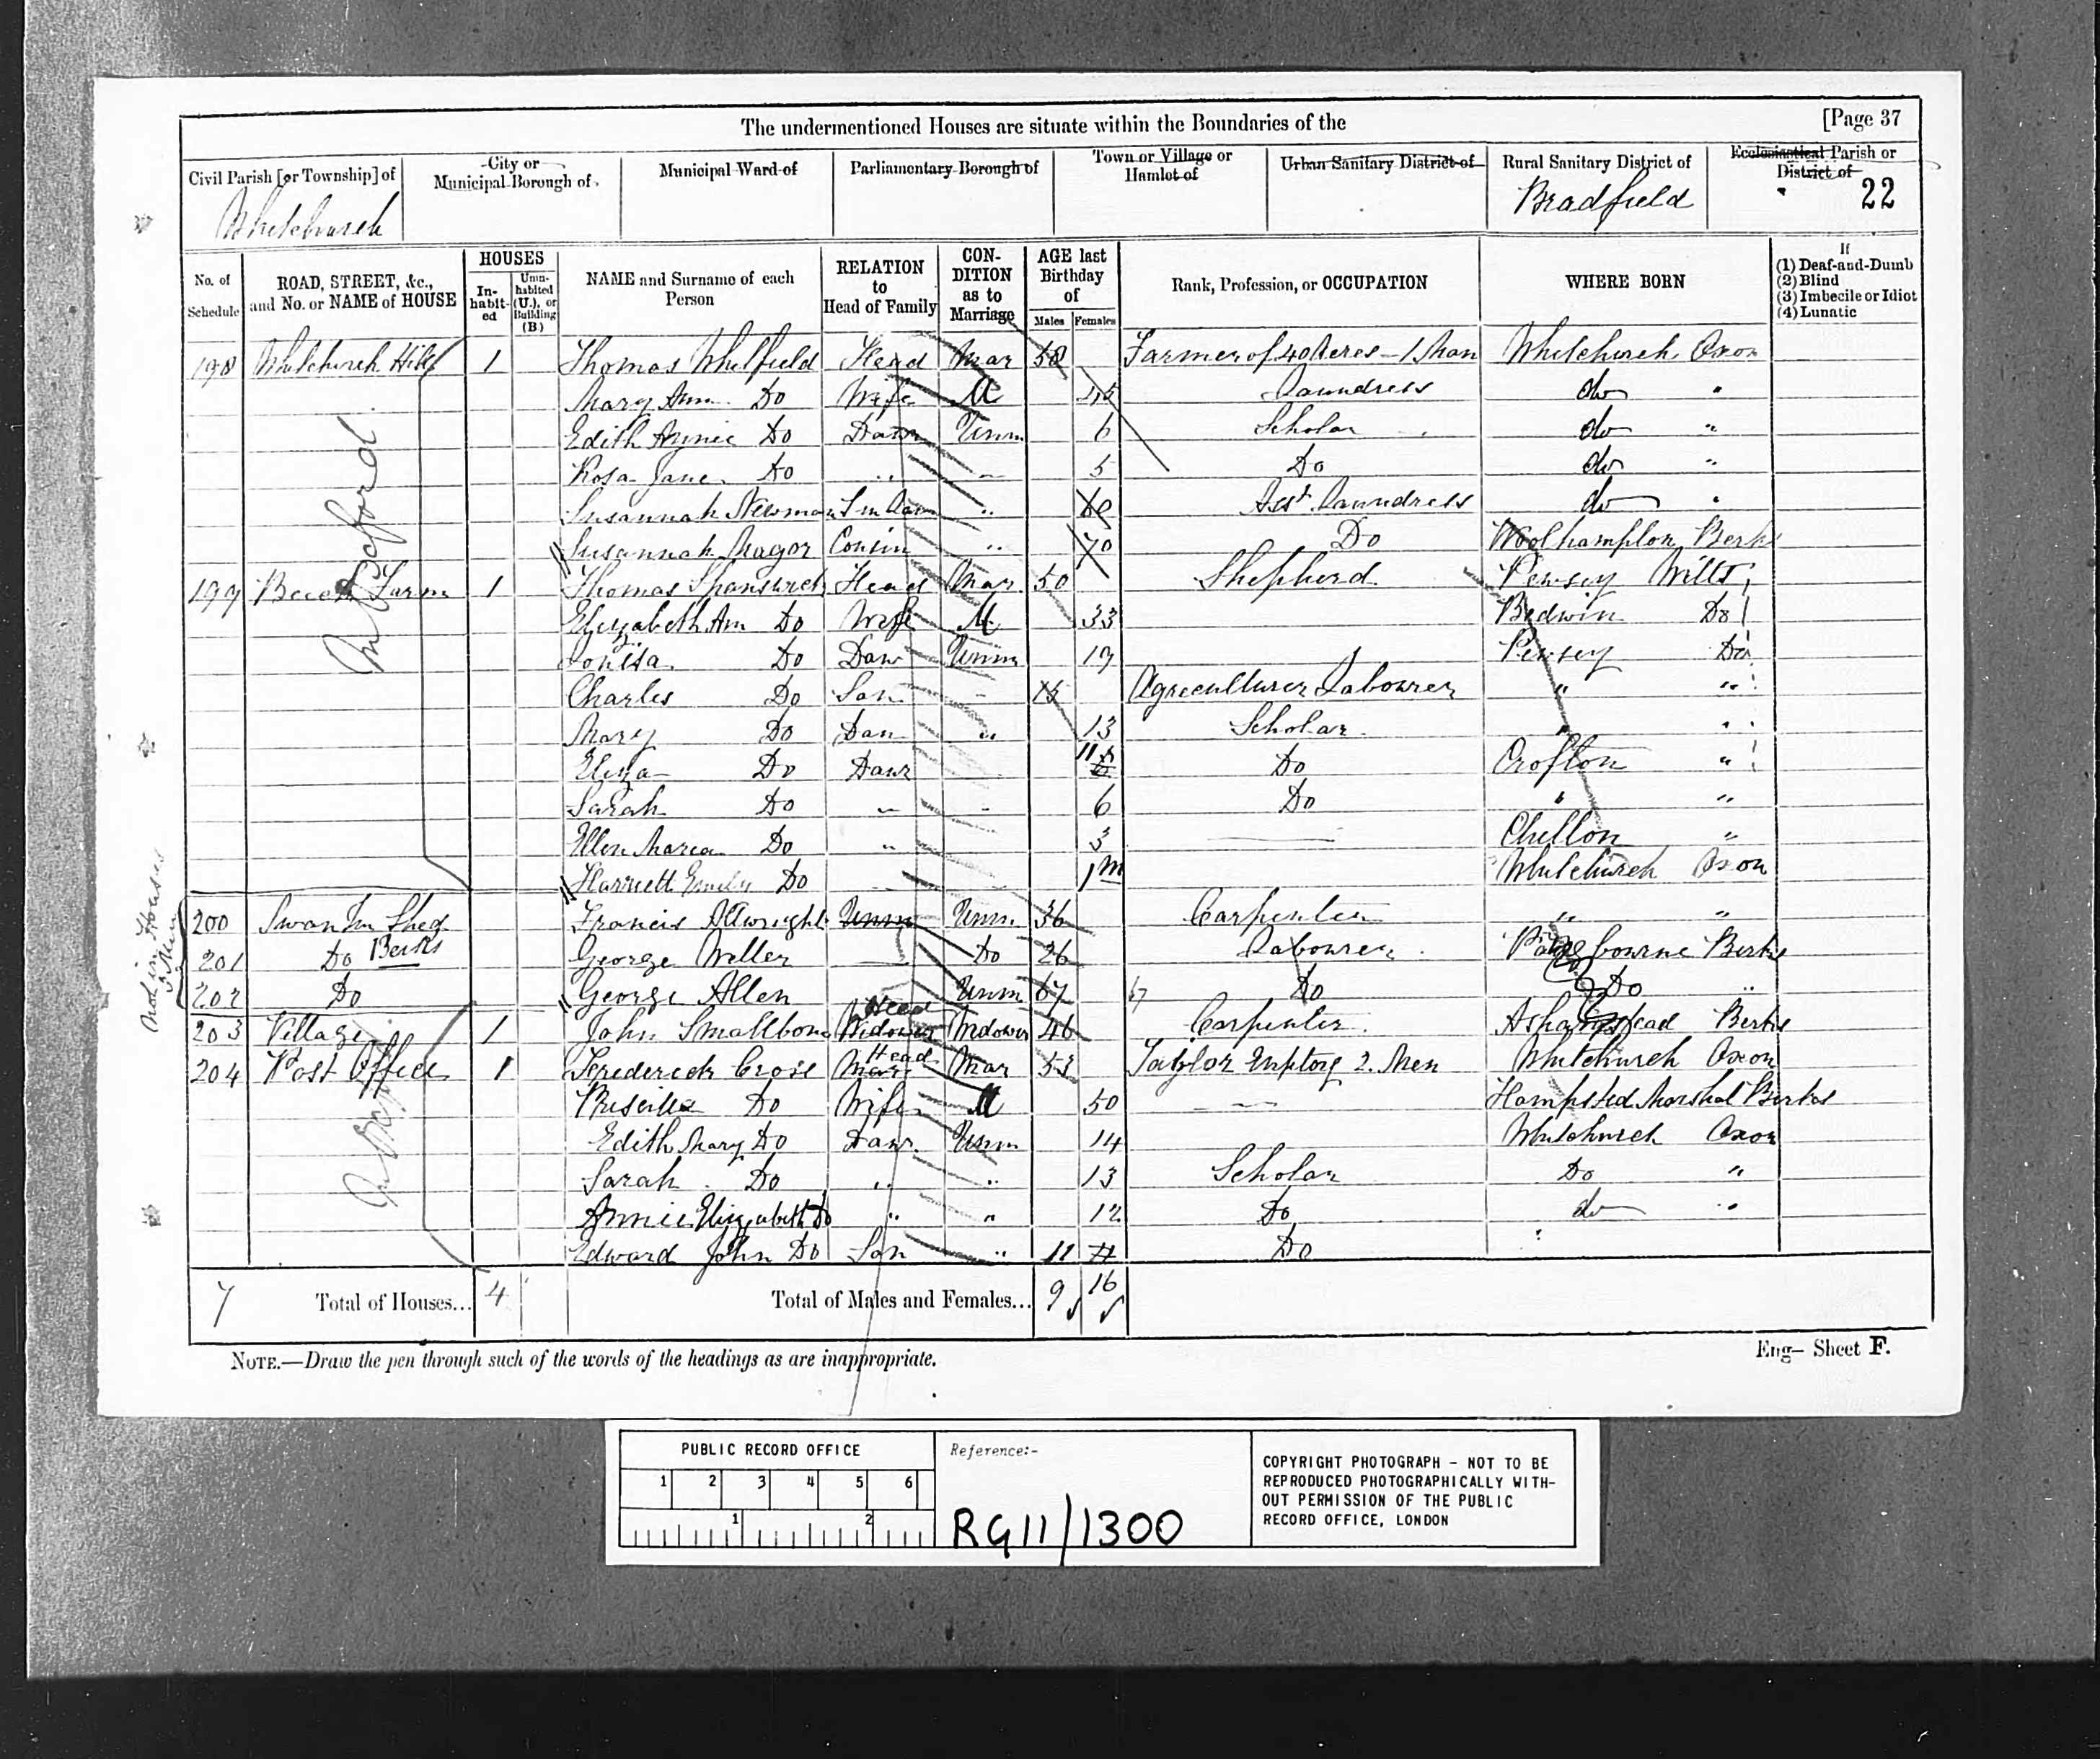 The undermentioned Houses are situate within the Boundaries of the [Page 37
Civil Parish [or Township] of
City or Municipal Borough of
Municipal Ward of
Parliamentary Borough of
Town or Village or Hamlet of
Urban Sanitary District of
Rural Sanitary District of
Ecclesiastical Parish or District of
Whitchurch Bradfield 22
No. of Schedule
ROAD, STREET, &c., and No. or NAME of HOUSE
HOUSES
In-habit-ed
Unin-habited (U.), or Building (B)
NAME and Surname of each Person
RELATION to Head of Family
CON-DITION as to Marriage
AGE last Birthday of
Males Females
Rank, Profession, or OCCUPATION
WHERE BORN
If
(1) Deaf-and-Dumb
(2) Blind
(3) Imbecile or Idiot
(4) Lunatic
198 Whitchurch Hill 1 Thomas Whitfield Head Mar 58 Farmer of 40 Acres - 1 Man Whitchurch Oxon
Mary Ann Do Wife M 45 Laundress do "
Edith Annie Do Daur Unm 6 Scholar do "
Rosa Jane Do " - 5 Do do "
Susannah Newman " 60 Asst Laundress do "
Susannah Magor Cousin " 70 Do Woolhampton Berks
199 Beech Farm 1 Thomas Spanswick Head Mar 50 Shepherd Pewsey Wilts
Elizabeth Ann Do Wife M 33 Bedwin Do
Do Daur Unm 19 Pewsey Do
Charles Do Son - 15 Agreculturer Labourer " "
Mary Do Daur " 13 Scholar " "
Eliza Do Daur 11 Do Crofton "
Sarah Do " - 6 Do " "
Ellen Maria Do " 3 Chilton "
Harriett Emily Do 1m Whitchurch Oxon
200 Swan Inn Shed Francis Allwright Unm Unm 36 Carpenter " "
201 Do Berks George Weller Do 26 Labourer Pangbourne Berks
202 Do George Allen Unm 67 67 Do Do "
203 Village 1 John Smallbone Head Widower Widower 46 Carpenter Ashampstead Berks
204 Post Office 1 Frederick Cross Head Mar Mar 53 Taylor Emploing 2. Men Whitchurch Oxon
Priscilla Do Wife M 50 Hampsted Marshal Berks
Edith Mary Do Daur Unm 14 Whitchurch Oxon
Sarah Do " " 13 Scholar Do "
Annie Elizabeth Do " " 12 Do do "
Edward John Do Son " 11 11 Do "
7 Total of Houses... 4 Total of Males and Females... 9 16
NOTE.—Draw the pen through such of the words of the headings as are inappropriate.
Eng— Sheet F.
Not in Houses
PUBLIC RECORD OFFICE
1 2 3 4 5 6
1 2
Reference:-
RG11/1300
COPYRIGHT PHOTOGRAPH - NOT TO BE
REPRODUCED PHOTOGRAPHICALLY WITH-
OUT PERMISSION OF THE PUBLIC
RECORD OFFICE, LONDON